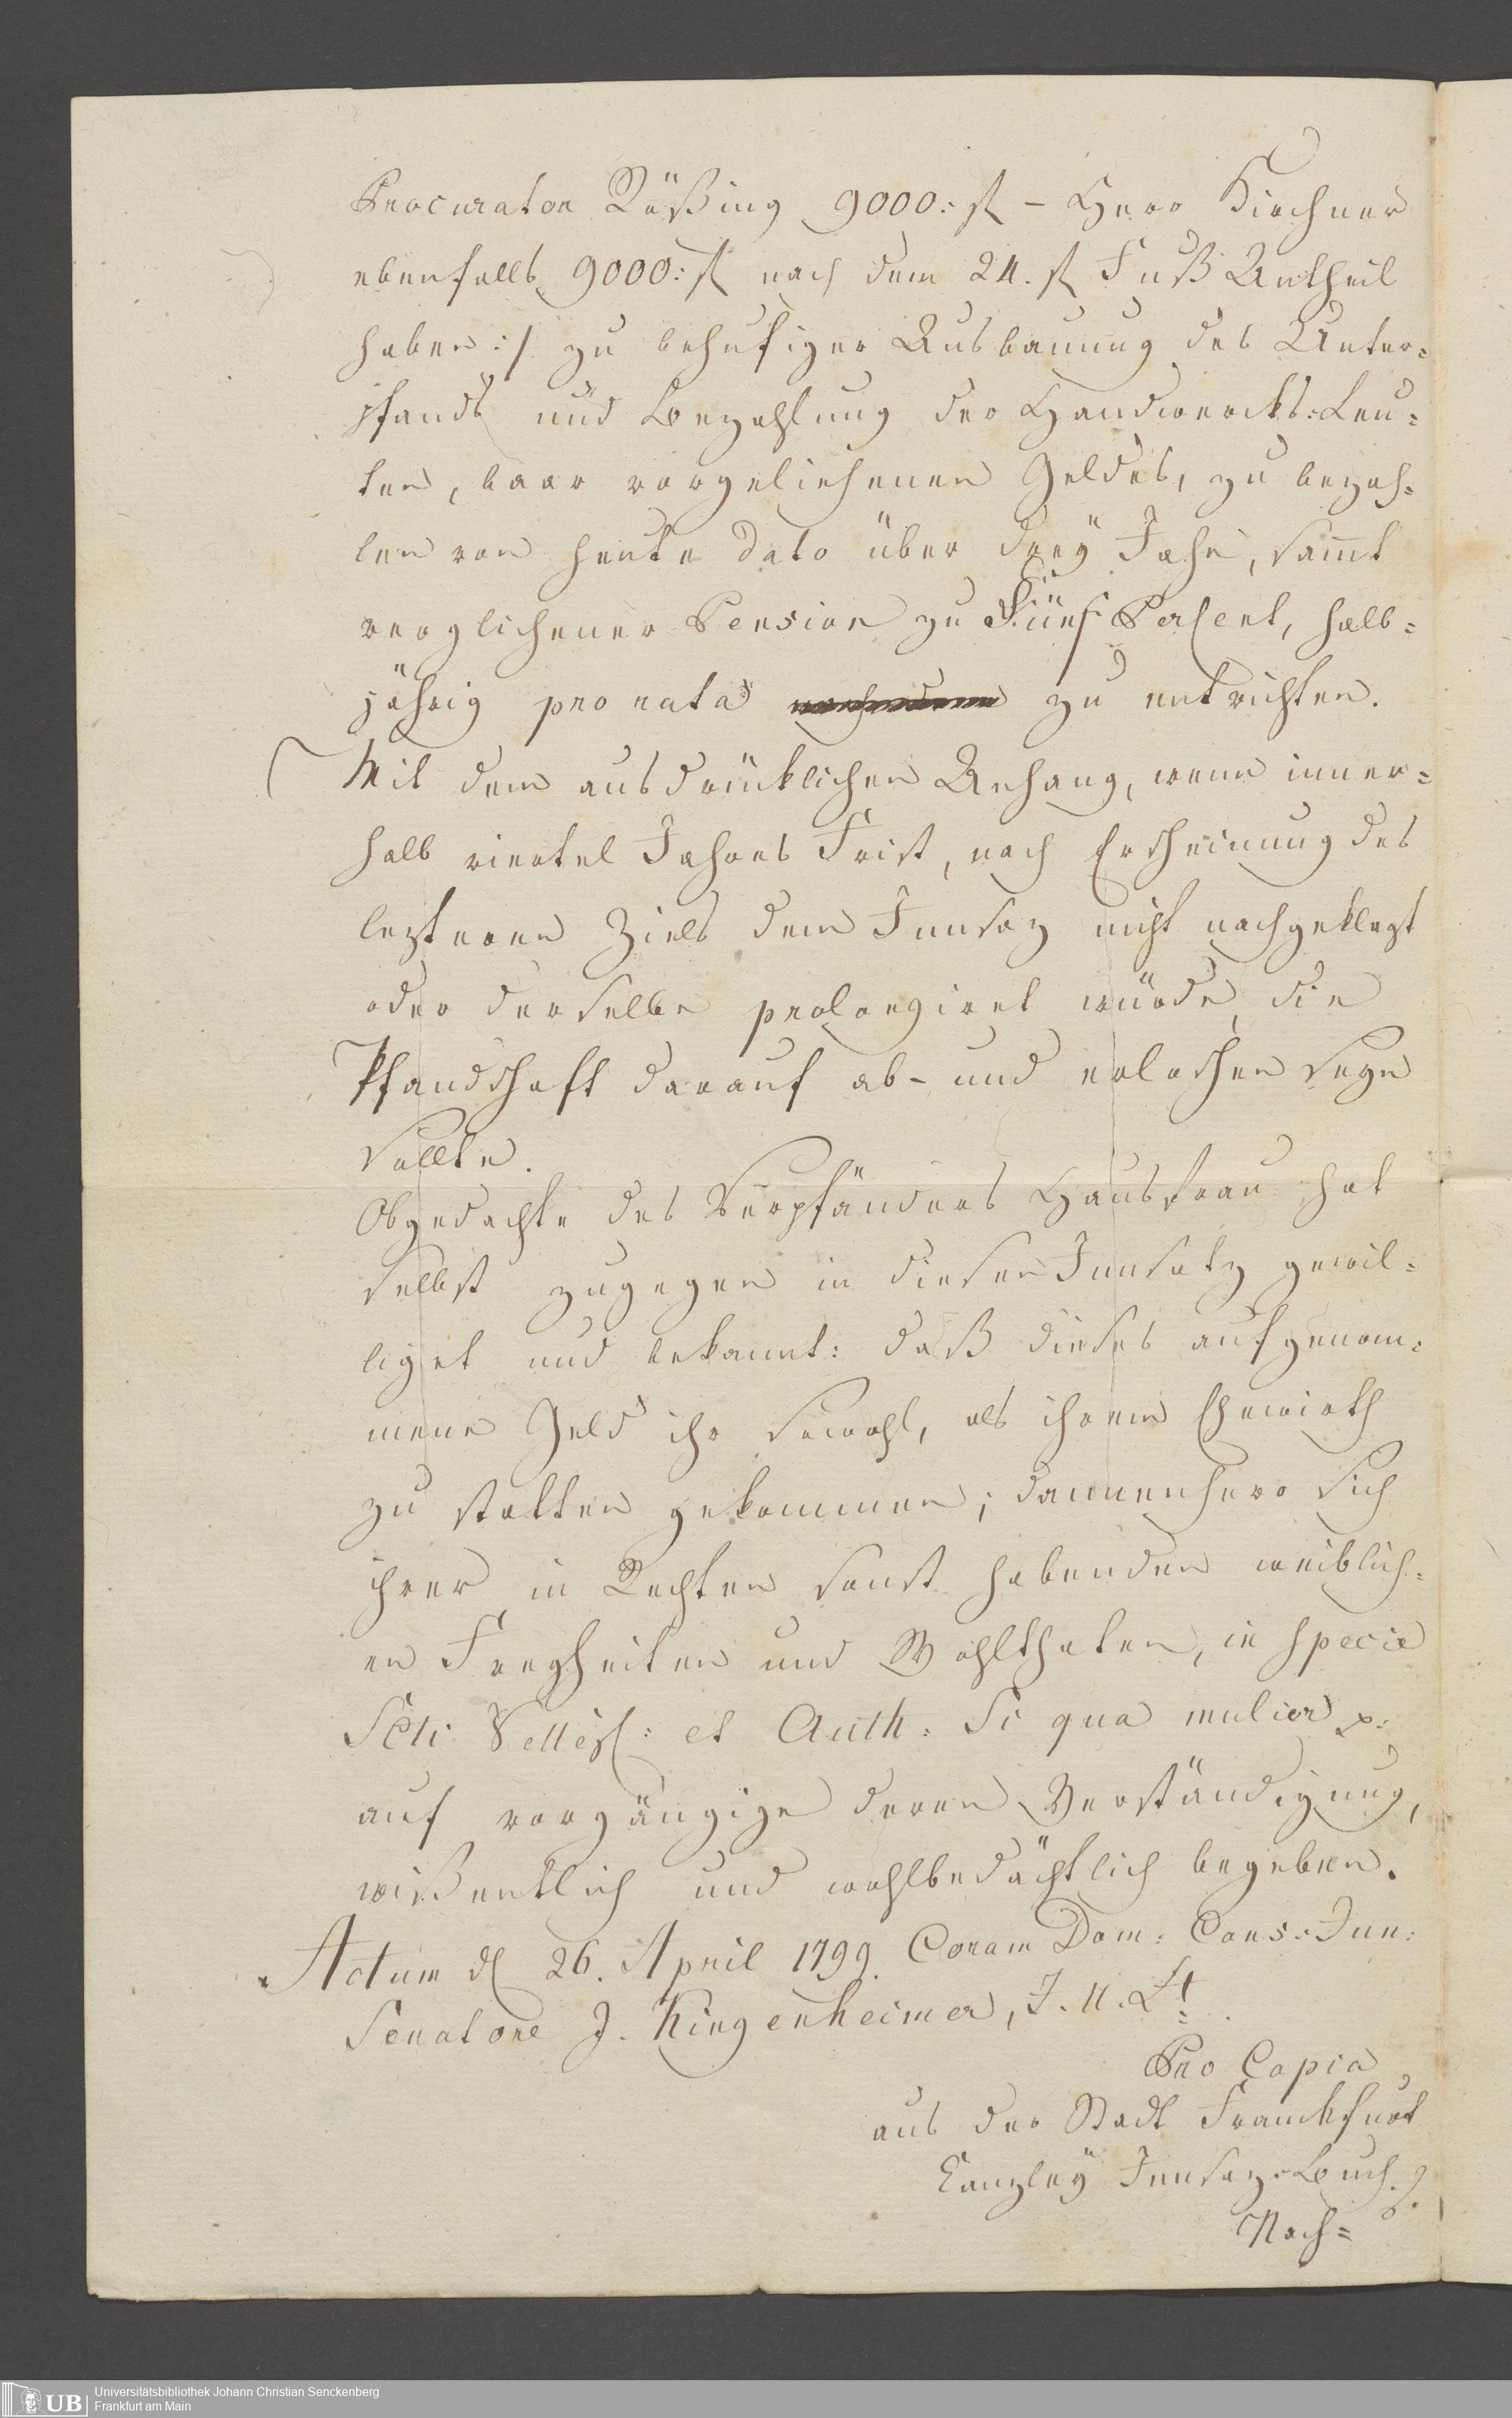 Procurator Rößing 9000: fl – Herr Kirchner
ebenfalls 9000: fl nach dem 24. fl Fuß Antheil
haben :/ zu behufiger Ausbauung des Unter=
pfands und Bezahlung der Handwercks=Leu=
ten, baar vorgeliehenen Geldes, zu bezah=
len von heute dato über drey Jahr, samt
verglichener Pension zu Fünf Percent, halb=
jährig pro rata zu entrichten.
Mit dem ausdrücklichen Anhang, wenn inner=
halb viertel Jahres Frist, nach Erscheinung des
lezteren Ziels dem Innsaz nicht nachgeklagt
oder derselbe prolongiret würde, die
Pfandschaft darauf ab- und erloschen seyn
sollte.
Obgedachte des Verpfänders Hausfrau hat
selbst zugegen in diesen Innsatz gewil=
liget und bekannt: daß dieses aufgenom=
mene Geld ihr sowohl, als ihrem Ehewirth
zu statten gekommen; dannenhero sich
ihrer in Rechten sonst habenden weiblich=
en Freyheiten und Wohlthaten, in specie
Scti Vellej: et Auth: Si qua mulier p:
auf vorgängige deren Verständigung,
wißentlich und wohlbedächtlich begeben.
Actum d 26. April 1799. Coram Dom: Cons: Jun:
Senatore J. Kingenheimer, J. U. Lt:
Pro Copia
aus der Stadt Franckfurt
Canzley Innsaz=Buch.
Nach=
Universitätsbibliothek Johann Christian Senckenberg
Frankfurt am Main
UB